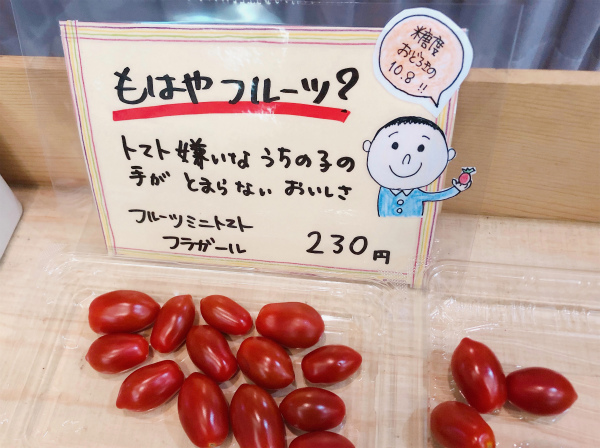 もはやフルーツ?
糖度
おどろきの
10.8!!
トマト嫌いな うちの子の
手が とまらない おいしさ
フルーツミニトマト
フラガール
230円